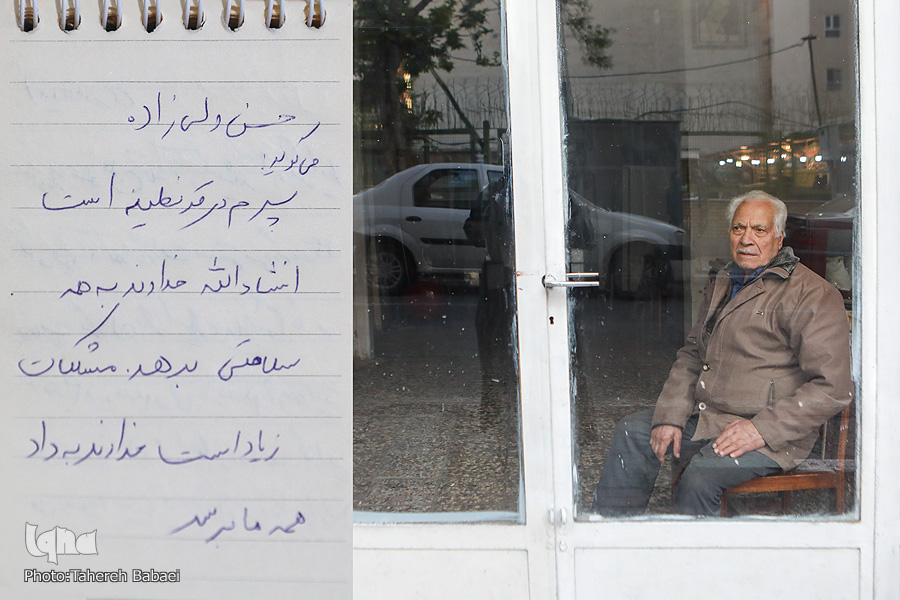 حسن ولی زاده
می گوید:
پسرم در قرنطینه است
انشاءالله خداوند به همه
سلامتی بدهد. مشکلات
زیاد است خداوند به داد
همه ما برسد
iqna
Photo:Tahereh Babaei